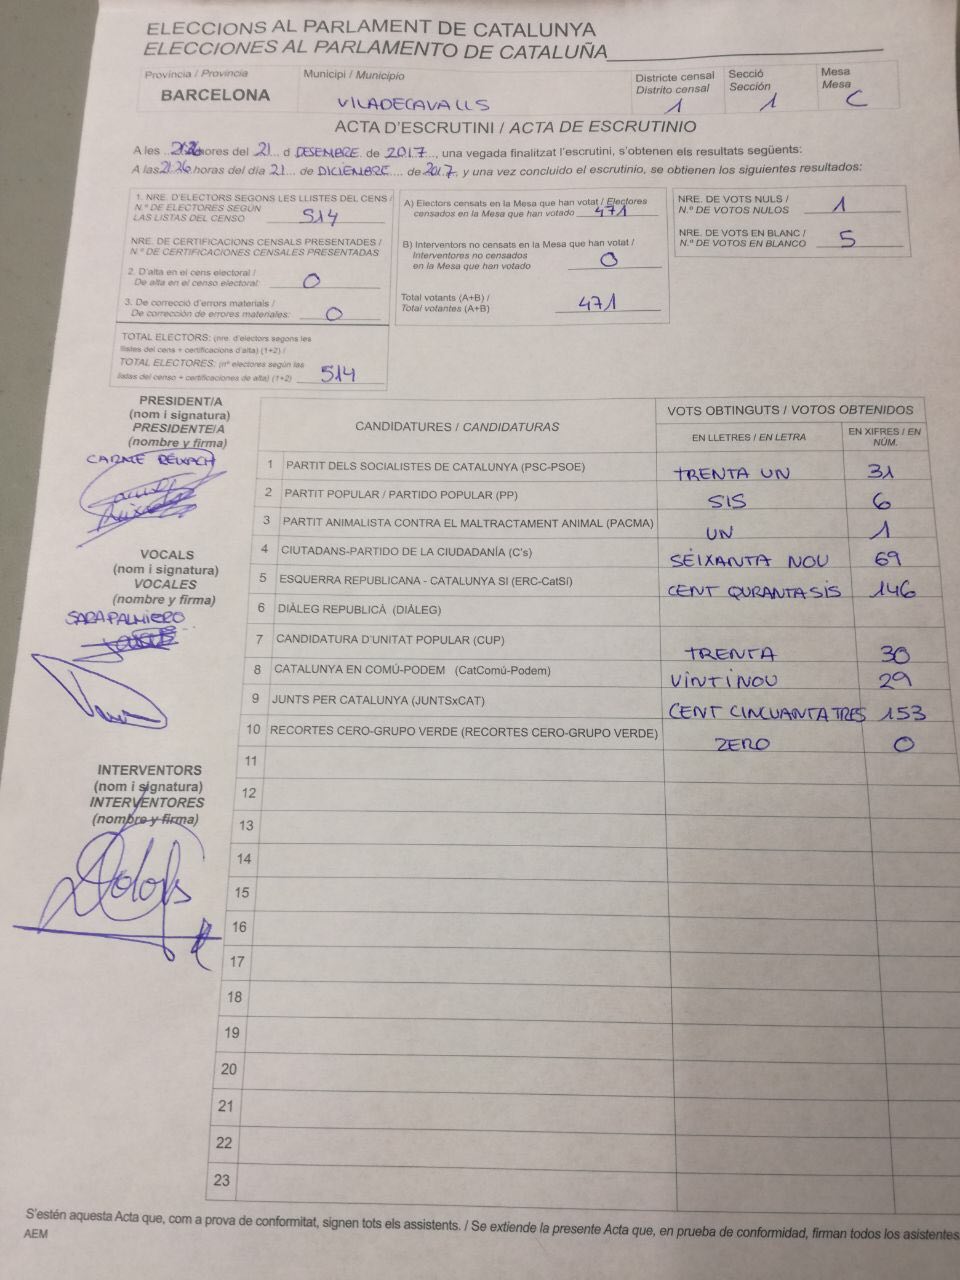 ELECCIONS AL PARLAMENT DE CATALUNYA
ELECCIONES AL PARLAMENTO DE CATALUÑA
Província / Provincia
BARCELONA
Municipi / Municipio
VILADECAVALLS
Districte censal
Distrito censal
1
Secció
Sección
1
Mesa
Mesa
C
ACTA D'ESCRUTINI / ACTA DE ESCRUTINIO
A les 21:26 hores del 21 d DESEMBRE de 2017, una vegada finalitzat l'escrutini, s'obtenen els resultats següents:
A las 21:26 horas del día 21 de DICIEMBRE de 2017 y una vez concluido el escrutinio, se obtienen los siguientes resultados:
1. NRE. D'ELECTORS SEGONS LES LLISTES DEL CENS /
N.º DE ELECTORES SEGÚN
LAS LISTAS DEL CENSO 514
NRE. DE CERTIFICACIONS CENSALS PRESENTADES /
N.º DE CERTIFICACIONES CENSALES PRESENTADAS
2. D'alta en el cens electoral /
De alta en el censo electoral: 0
3. De correcció d'errors materials /
De corrección de errores materiales: 0
TOTAL ELECTORS: (nre. d'electors segons les
llistes del cens + certificacions d'alta) (1+2) /
TOTAL ELECTORES: (nº electores según las
listas del censo + certificaciones de alta) (1+2) 514
A) Electors censats en la Mesa que han votat / Electores
censados en la Mesa que han votado 471
B) Interventors no censats en la Mesa que han votat /
Interventores no censados
en la Mesa que han votado 0
Total votants (A+B) /
Total votantes (A+B) 471
NRE. DE VOTS NULS /
N.º DE VOTOS NULOS 1
NRE. DE VOTS EN BLANC /
N.º DE VOTOS EN BLANCO 5
PRESIDENT/A
(nom i signatura)
PRESIDENTE/A
(nombre y firma)
CARME REIXACH
VOCALS
(nom i signatura)
VOCALES
(nombre y firma)
SARA PALMIERO
INTERVENTORS
(nom i signatura)
INTERVENTORES
(nombre y firma)
CANDIDATURES / CANDIDATURAS
VOTS OBTINGUTS / VOTOS OBTENIDOS
EN LLETRES / EN LETRA
EN XIFRES / EN NÚM.
1 PARTIT DELS SOCIALISTES DE CATALUNYA (PSC-PSOE) TRENTA UN 31
2 PARTIT POPULAR / PARTIDO POPULAR (PP) SIS 6
3 PARTIT ANIMALISTA CONTRA EL MALTRACTAMENT ANIMAL (PACMA) UN 1
4 CIUTADANS-PARTIDO DE LA CIUDADANÍA (C's) SEIXANTA NOU 69
5 ESQUERRA REPUBLICANA - CATALUNYA SI (ERC-CatSí) CENT QURANTA SIS 146
6 DIÀLEG REPUBLICÀ (DIÀLEG)
7 CANDIDATURA D'UNITAT POPULAR (CUP) TRENTA 30
8 CATALUNYA EN COMÚ-PODEM (CatComú-Podem) VINTINOU 29
9 JUNTS PER CATALUNYA (JUNTSxCAT) CENT CINCUANTA TRES 153
10 RECORTES CERO-GRUPO VERDE (RECORTES CERO-GRUPO VERDE) ZERO 0
11
12
13
14
15
16
17
18
19
20
21
22
23
S'estén aquesta Acta que, com a prova de conformitat, signen tots els assistents. / Se extiende la presente Acta que, en prueba de conformidad, firman todos los asistentes.
AEM